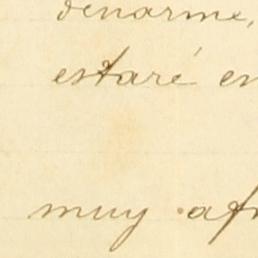 denarme,
estaré en
muy af